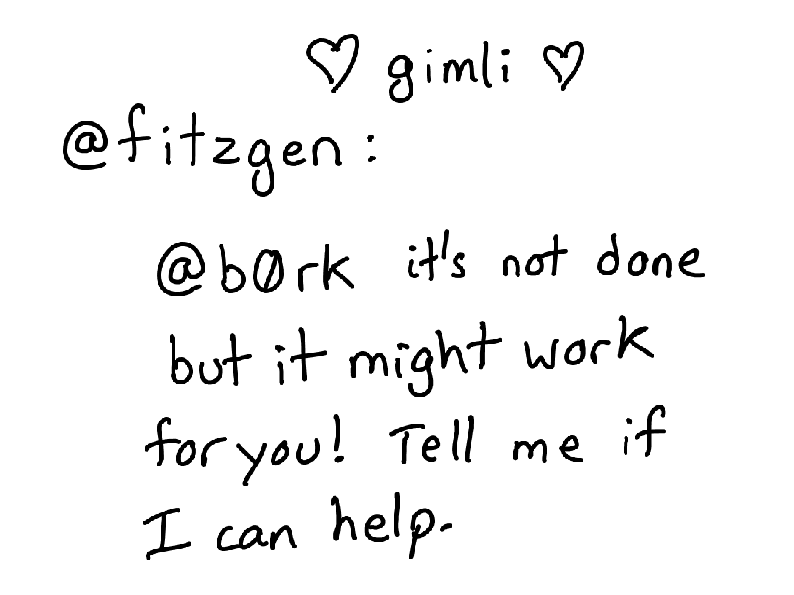 ♡ gimli ♡
@fitzgen:
@b0rk it's not done
but it might work
for you! Tell me if
I can help.